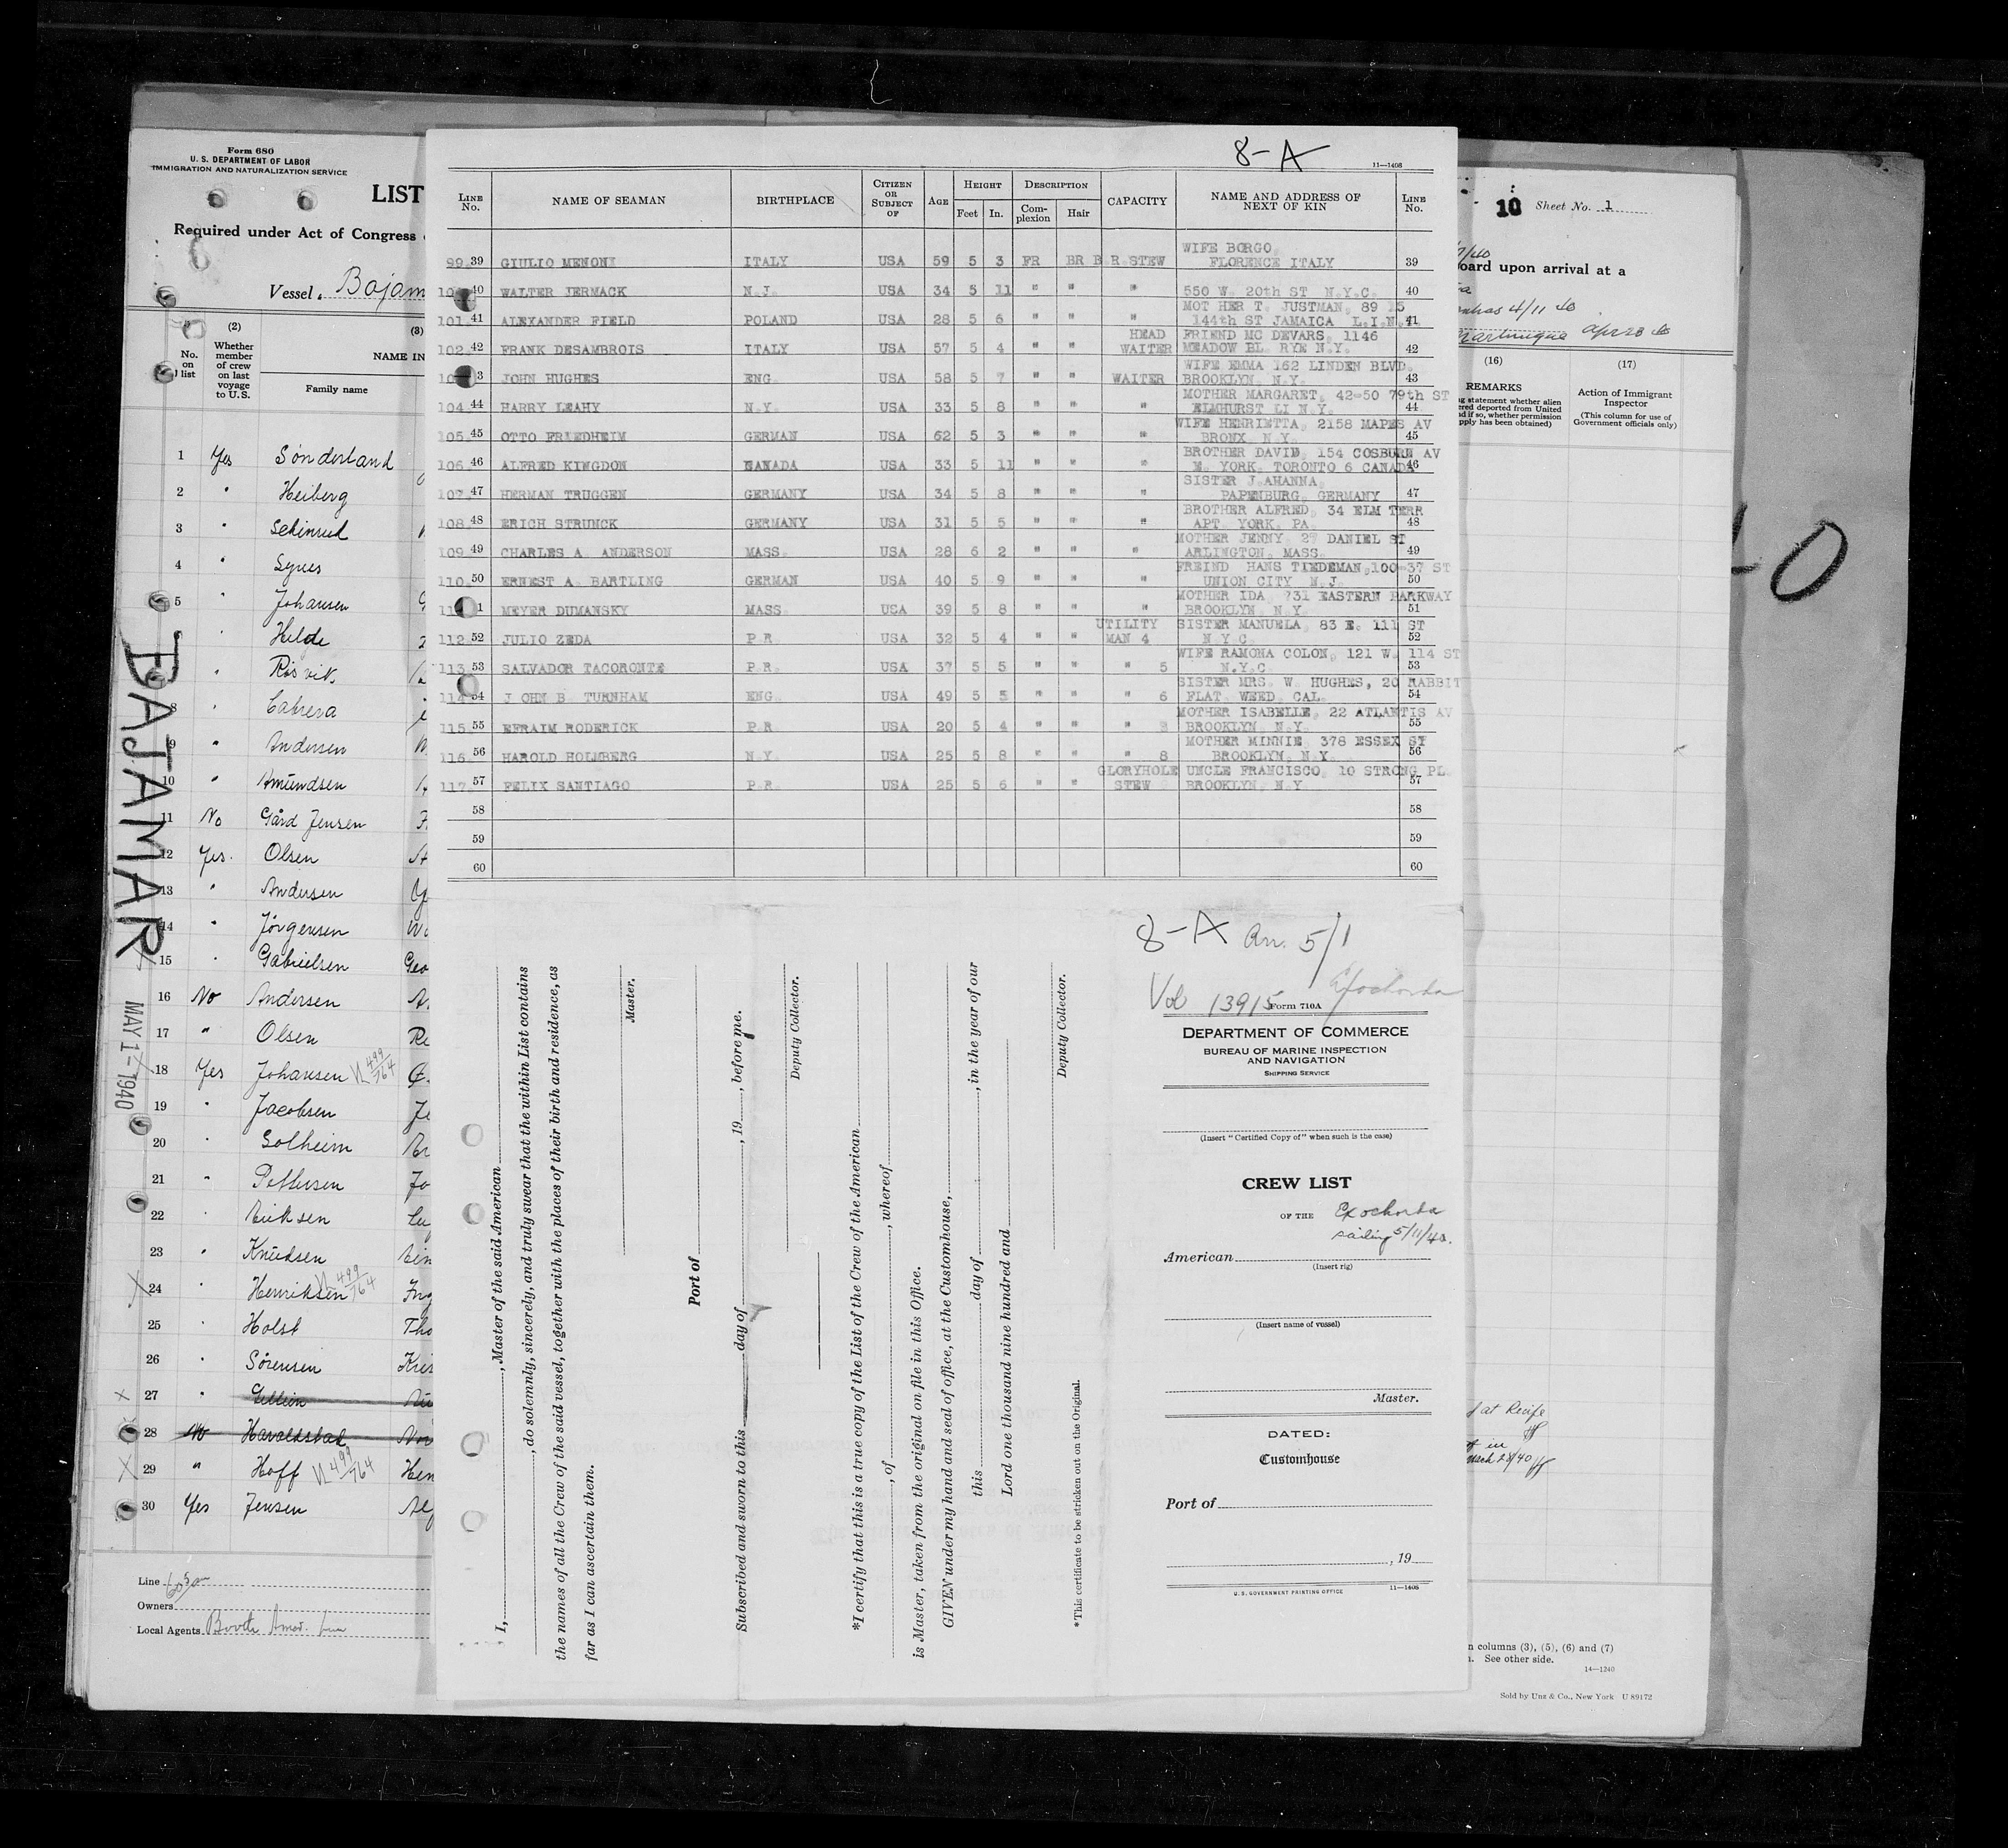 Form 680
U. S. DEPARTMENT OF LABOR
IMMIGRATION AND NATURALIZATION SERVICE
LIST
Required under Act of Congress
Vessel Bajam
(2) (3)
No. on list
Whether member of crew on last voyage to U.S.
NAME IN
Family name
1 Yes Sonderland
2 " Heiberg
3 "
4 "
5 Johansen
" Helde
" Rosvik
8 " Cabrera
9 " Andersen
10 " Amundsen
11 No Gård Jensen
12 Yes. Olsen
13 " Andersen
14 " Jörgensen
15 " Gabrielsen Geo
16 No Andersen
17 " Olsen
18 Yes Johansen 499/764
19 " Jacobsen
20 " Solheim
21 " Pettersen
22 " Eriksen
23 " Knudsen
24 " Henriksen 499/764
25 " Holst Tho
26 " Sörensen
27 "
28 No Haraldstad
29 " Hoff 499/764 Hen
30 Yes Jensen
BAJAMAR
MAY 1 - 1940
Line
Owners
Local Agents Booth Amer. Line
8-A
11—1408
LINE No.
NAME OF SEAMAN
BIRTHPLACE
CITIZEN OR SUBJECT OF
AGE
HEIGHT
Feet In.
DESCRIPTION
Complexion Hair
CAPACITY
NAME AND ADDRESS OF NEXT OF KIN
LINE No.
WIFE BORGO,
99. 39 GIULIO MENONI ITALY USA 59 5 3 FR BR B.R.STEW FLORENCE ITALY 39
40 WALTER JERMACK N.J. USA 34 5 11 " " " 550 W. 20th ST N.Y.C. 40
MOT HER T. JUSTMAN, 89 15
101. 41 ALEXANDER FIELD POLAND USA 28 5 6 " " " 144th ST JAMAICA L.I.N.Y. 41
HEAD FRIEND MC DEVARS, 1146
102. 42 FRANK DESAMBROIS ITALY USA 57 5 4 " " WAITER MEADOW BL. RYE N.Y. 42
WIFE EMMA 162 LINDEN BLVD.
3 JOHN HUGHES ENG. USA 58 5 7 " " WAITER BROOKLYN. N.Y. 43
MOTHER MARGARET, 42-50 79th ST
104. 44 HARRY LEAHY N.Y. USA 33 5 8 " " " ELMHURST LI N.Y. 44
WIFE HENRIETTA, 2158 MAPES AV
105. 45 OTTO FRIEDHEIM GERMAN USA 62 5 3 " " " BRONX, N.Y. 45
BROTHER DAVID, 154 COSBURN AV
106. 46 ALFRED KINGDON CANADA USA 33 5 11 " " " E. YORK, TORONTO 6 CANADA 46
SISTER J.AHANNA,
107. 47 HERMAN TRUGGEN GERMANY USA 34 5 8 " " " PAPENBURG, GERMANY 47
BROTHER ALFRED, 34 ELM TERR
108. 48 ERICH STRUNCK GERMANY USA 31 5 5 " " " APT. YORK. PA. 48
MOTHER JENNY, 27 DANIEL ST
109. 49 CHARLES A. ANDERSON MASS. USA 28 6 2 " " " ARLINGTON, MASS. 49
FREIND HANS TIEDEMAN,100-37 ST
110. 50 ERNEST A. BARTLING GERMAN USA 40 5 9 " " " UNION CITY N.J. 50
MOTHER IDA, 731 EASTERN PARKWAY
1 MEYER DUMANSKY MASS. UCA 39 5 8 " " " BROOKLYN, N.Y. 51
UTILITY SISTER MANUELA, 83 E. 111 ST
112. 52 JULIO ZEDA P.R. USA 32 5 4 " " MAN 4 N.Y.C. 52
WIFE RAMONA COLON, 121 W. 114 ST
113. 53 SALVADOR TACORONTE P.R. USA 37 5 5 " " " 5 N.Y.C. 53
SISTER MRS. W. HUGHES, 20 RABBIT
114. 54 J OHN B. TURNHAM ENG. USA 49 5 5 " " " 6 FLAT. WEED. CAL. 54
MOTHER ISABELLE, 22 ATLANTIS AV
115. 55 EFRAIM RODERICK P.R. USA 20 5 4 " " " BROOKLYN. N.Y. 55
MOTHER MINNIE, 378 ESSEX ST
116. 56 HAROLD HOLMBERG N.Y. USA 25 5 8 " " " 8 BROOKLYN, N.Y. 56
GLORYHOLE UNCLE FRANCISCO, 10 STRONG PL.
117. 57 FELIX SANTIAGO P.R. USA 25 5 6 " " STEW BROOKLYN, N.Y. 57
58 58
59 59
60 60
I, , Master of the said American
, do solemnly, sincerely, and truly swear that the within List contains
the names of all the Crew of the said vessel, together with the places of their birth and residence, as
far as I can ascertain them.
Master.
Port of
Subscribed and sworn to this day of , 19 , before me.
Deputy Collector.
*I certify that this is a true copy of the List of the Crew of the American
, of , whereof
is Master, taken from the original on file in this Office.
GIVEN under my hand and seal of office, at the Customhouse,
this day of , in the year of our
Lord one thousand nine hundred and
Deputy Collector.
*This certificate to be stricken out on the Original.
8-A Arr. 5/1
Vol 13915 Exochorda
Form 710A
DEPARTMENT OF COMMERCE
BUREAU OF MARINE INSPECTION
AND NAVIGATION
SHIPPING SERVICE
(Insert "Certified Copy of" when such is the case)
CREW LIST
OF THE Exochorda
sailing 5/11/40.
American
(Insert rig)
(Insert name of vessel)
Master.
DATED:
Customhouse
Port of
, 19
U. S. GOVERNMENT PRINTING OFFICE 11—1408
10 Sheet No. 1
oard upon arrival at a
4/11 40
Martinique Apr 23 40
(16) (17)
REMARKS
g statement whether alien
ered deported from United
d if so, whether permission
pply has been obtained)
Action of Immigrant Inspector
(This column for use of Government officials only)
at Recife
in
28/40
n columns (3), (5), (6) and (7)
. See other side.
14—1240
Sold by Unz & Co., New York U 89172